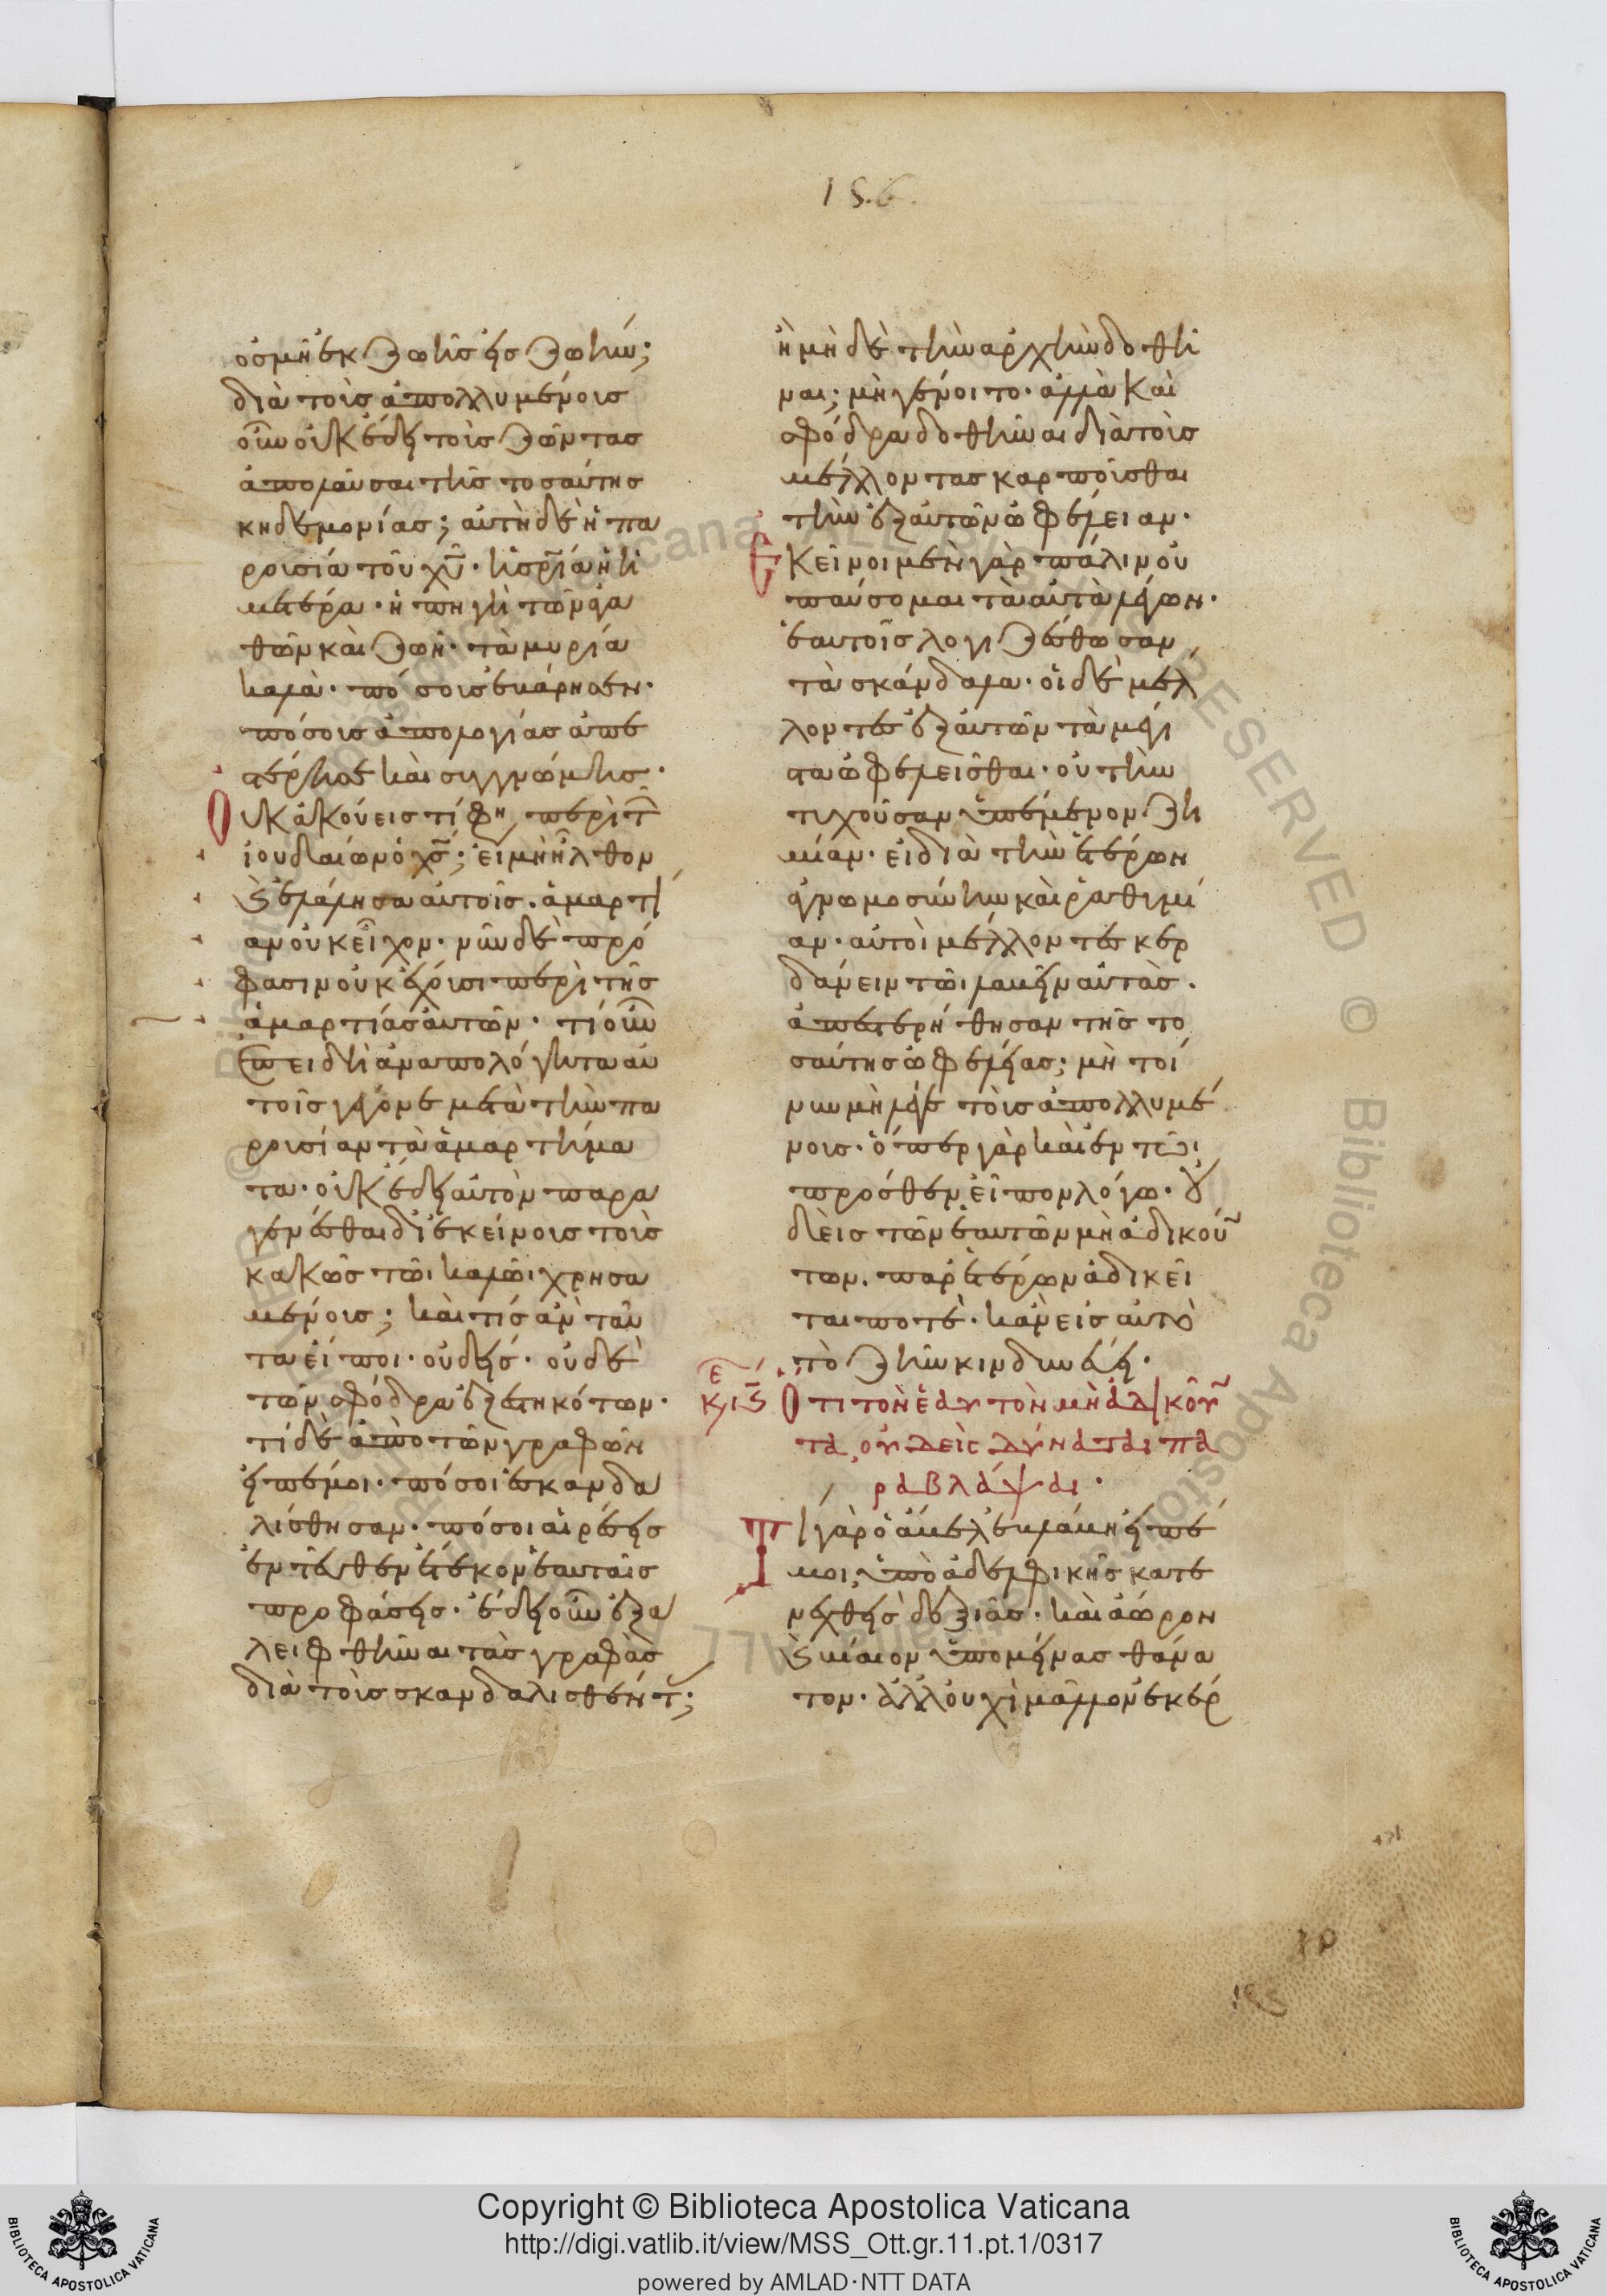 156
ὀσμὴ ἐκ ζωῆς εἰς ζωήν;
διὰ τοὺς ἀπολλυμένους
οὖν οὐκ ἔδει τοὺς ζῶντας
ἀπολαῦσαι τῆς τοσαύτης
κηδεμονίας; αὐτὴ δὲ ἡ πα
ρουσία τοῦ χῦ. ἡ σρία ἡ ἡ
μετέρα. ἡ πηγὴ τῶν ἀγα
θῶν καὶ ζωή. τὰ μυρία
καλὰ. πόσους ἐκάρωσεν.
πόσους ἀπολογίας ἀπε
στέρησε καὶ συγγνώμης.
Οὐκ ἀκούεις τί φη, περὶ τ
ἰουδαίων ὁ χς; εἰ μὴ ἦλθον
καὶ ἐλάλησα αὐτοῖς. ἁμαρτί
αν οὐκ εἶχον. νῦν δὲ πρό
φασιν οὐκ ἔχουσι περὶ τῆς
ἁμαρτίας αὐτῶν. τί οὖν
ἐπειδὴ ἀναπολόγητα αὐ
τοῖς γέγονε μετὰ τὴν πα
ρουσίαν τὰ ἁμαρτήμα
τα. οὐκ ἔδει αὐτὸν παρα
γενέσθαι δι ἐκείνους τοὺς
κακῶς τῶι καλῶι χρησα
μένους; καὶ τίς ἂν ταῦ
τα εἴποι. οὐδείς. οὐδὲ
τῶν σφόδρα ἐξεστηκότων.
τί δὲ ἀπὸ τῶν γραφῶν
εἰπέ μοι. πόσοι ἐσκανδα
λίσθησαν. πόσοι αἱρέσεις
ἐντεῦθεν ἔτεκον ἑαυταῖς
προφάσεις. ἔδει οὖν ἐξα
λειφθῆναι τὰς γραφὰς
διὰ τοὺς σκανδαλισθέντ;
ἢ μὴ δὲ τὴν ἀρχὴν δοθῆ
ναι; μὴ γένοιτο. ἀλλὰ καὶ
σφόδρα δοθῆναι διὰ τοὺς
μέλλοντας καρποῦσθαι
τὴν ἐξ αὐτῶν ὠφέλειαν.
Ἐκεῖνοι μὲν γὰρ πάλιν οὐ
παύσομαι τὰ αὐτὰ λέγων.
ἑαυτοῖς λογιζέσθωσαν
τὰ σκάνδαλα. οἱ δὲ μέλ
λοντες ἐξ αὐτῶν τὰ μέγι
στα ὠφελεῖσθαι. οὐ τὴν
τυχοῦσαν ὑπέμενον ζη
μίαν. εἰ διὰ τὴν ἑτέρων
ἀγνωμοσύνην καὶ ῥαθυμί
αν. αὐτοὶ μέλλοντες κερ
δαίνειν τῶι
ἀπεστερήθησαν τῆς το
σαύτης ὠφελείας; μὴ τοί
νυν μὴ λέγε τοὺς ἀπολλυμέ
νους. ὅπερ γὰρ καὶ ἐν τῶι
πρόσθεν εἶπον λόγω. οὐ
δεὶς τῶν ἑαυτῶν μὴ ἀδικούν
των. παρ ἑτέρων ἀδικεῖ
ται ποτὲ. κἂν εἰς αὐτὸ
τὸ ζῆν κινδυνεύει.
κε ις Ὅτι τὸν ἑαυτὸν μὴ ἀδικοῦν
τα, οὐδεὶς δύναται πα
ραβλάψαι.
Τί γὰρ ὁ ἄβελ ἐβλάβη εἰπέ
μοι, ὑπὸ ἀδελφικῆς κατε
νεχθεὶς δεξιᾶς. καὶ ἄωρον
καὶ βίαιον ὑπομείνας θάνα
τον. ἀλλ οὐχὶ μᾶλλον ἐκέρ
Copyright © Biblioteca Apostolica Vaticana
http://digi.vatlib.it/view/MSS_Ott.gr.11.pt.1/0317
powered by AMLAD·NTT DATA